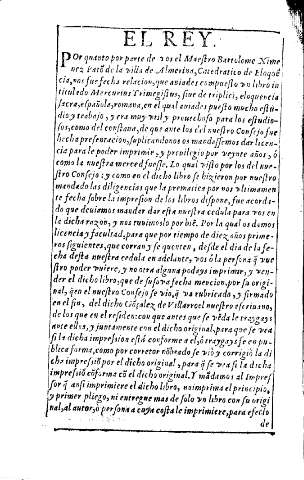 EL REY.
POr quanto por parte de vos el Maestro Bartolome Xime
nez Patō de la villa de Almedina, Catedratico de Eloquē
cia, nos fue fecha relacion, que auiades compuesto vn libro in
titulado Mercurius Trimegistus, siue de triplici, eloquencia
sacra, española, romana, en el qual auiades puesto mucho estu-
dio y trabajo, y era muy vtil y prouechoso para los estudio-
sos, como del constaua, de que ante los del nuestro Consejo fue
hecha presentacion, suplicandonos os mandassemos dar licen-
cia para le poder imprimir, y preuilegio por veynte años, ò
como la nuestra merced fuesse. Lo qual visto por los del nue-
stro Consejo, y como en el dicho libro se hizieron por nuestro
mandado las diligencias que la prematica por nos vltimamen
te fecha sobre la impresion de los libros dispone, fue acorda-
do que deuiamos mandar dar esta nuestra cedula para vos en
la dicha razon, y nos tuuimoslo por biē. Por la qual os damos
licencia y facultad, para que por tiempo de diez años prime-
ros siguientes, que corran y se quenten, desde el dia de la fe-
cha desta nuestra cedula en adelante, vos ò la persona q̄ vue
stro poder vuiere, y no otra alguna podays imprimir, y ven-
der el dicho libro, que de suso va fecha mencion, por su origi-
nal, q̄ en el nuestro Consejo se vio, q̄ va rubricado, y firmado
en el fin, del dicho Gōçalez de Villarroel nuestro escriuano,
de los que en el residen: con que antes que se vēda le traygays
ante ellos, y juntamente con el dicho original, para que se vea
si la dicha impression està conforme a el, ò traygays fe en pu-
blica forma, como por corretor nōbrado se vio y corrigio la di
cha impressiō por el dicho original, para q̄ se vea si la dicha
impressiō cōforma cō el dicho original. Y mādamos al impres
sor q̄ ansi imprimiere el dicho libro, no imprima el principio,
y primer pliego, ni entregue mas de solo vn libro con su origi
nal, al autor, ò persona a cuya costa le imprimiere, para efecto
de